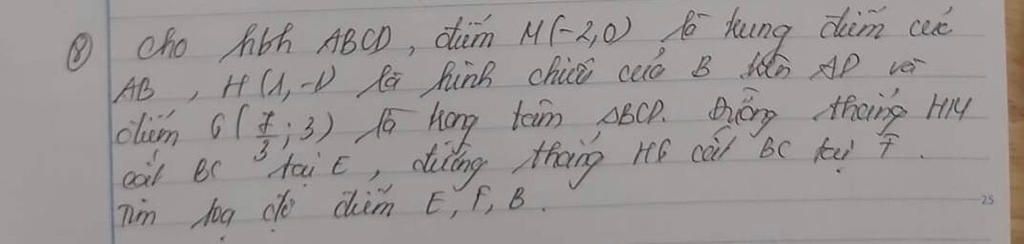 ⑧ Cho hbh ABCD, điểm M(-2,0) là trung điểm của
AB, H(1,-1) là hình chiếu của B trên AD và
điểm G(7/3; 3) là trọng tâm ΔBCD. Đường thẳng HM
cắt BC tại E, đường thẳng HG cắt BC tại F.
Tìm toạ độ điểm E, F, B.
25